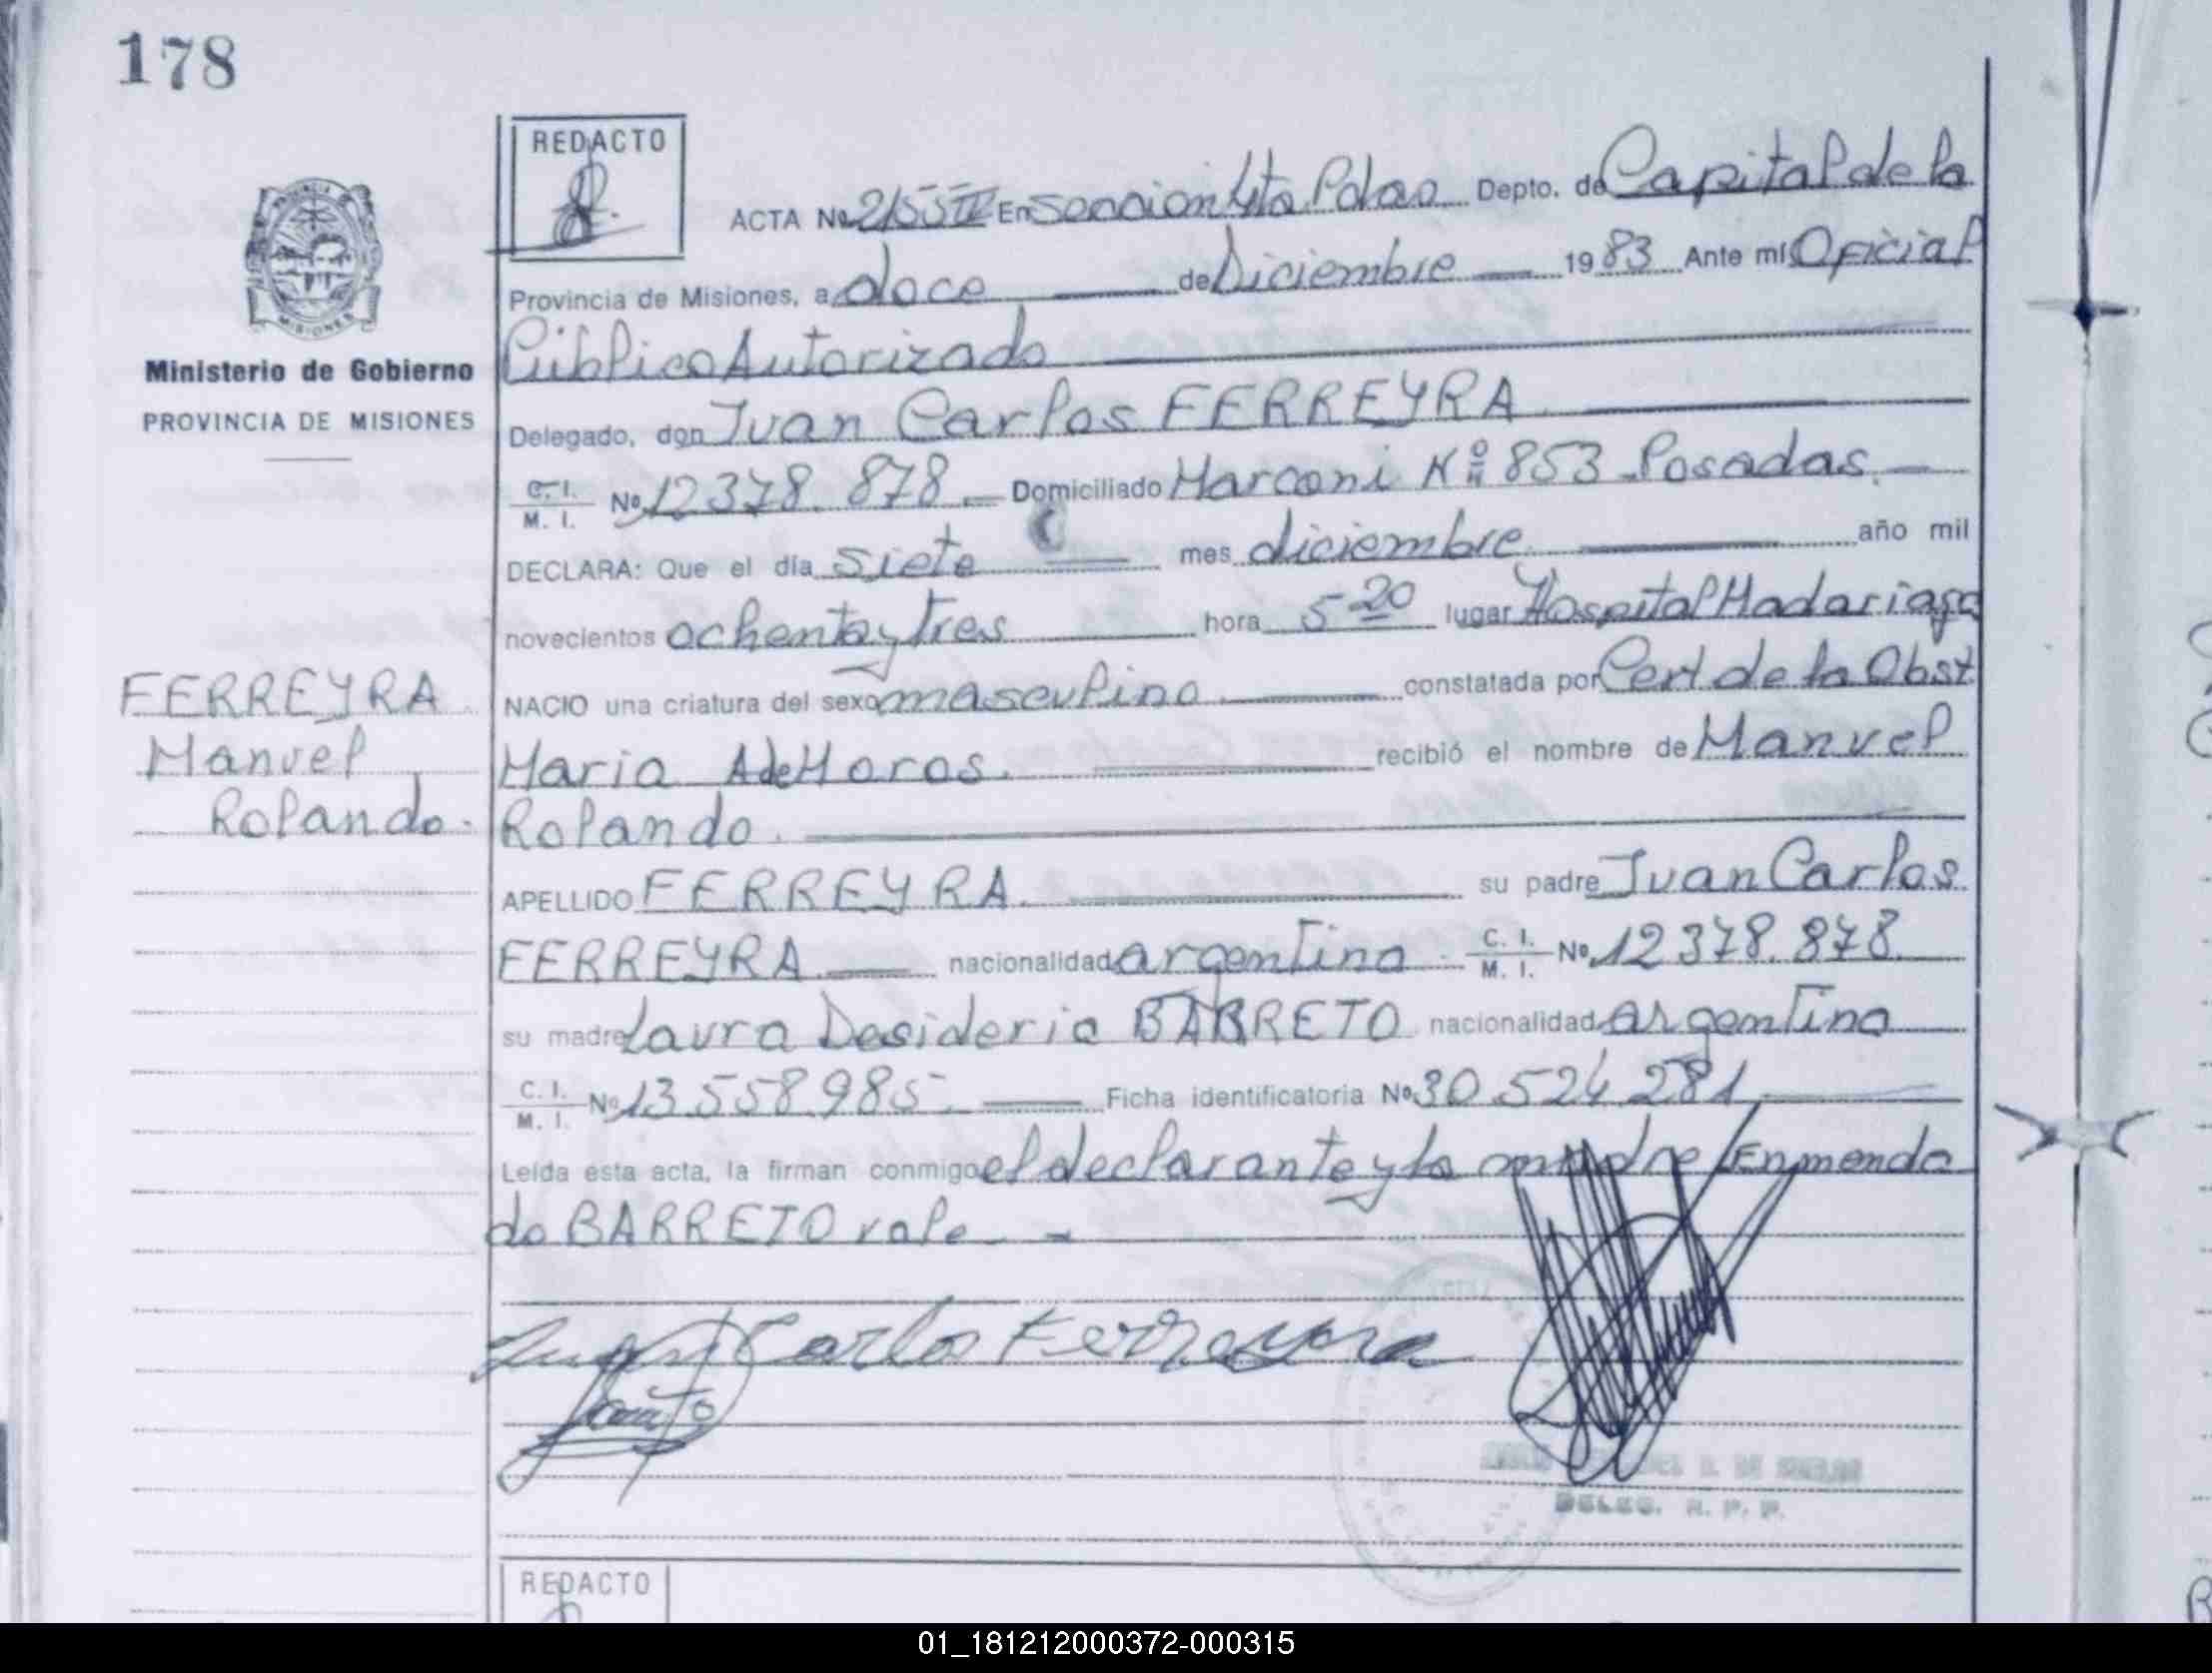 178
REDACTO
ACTA Nº 2155 IV En seccion 4ta Pdas Depto. de Capital de la
Provincia de Misiones, a doce de Diciembre 1983 Ante mí Oficial
Público Autorizado
Ministerio de Gobierno
PROVINCIA DE MISIONES
Delegado, don Juan Carlos FERREYRA
C. I. M. I. Nº 12378.878.- Domiciliado Marconi Nº 853 - Posadas.
DECLARA: Que el día siete mes diciembre año mil
novecientos ochenta y tres hora 5 20 lugar Hospital Madariaga
NACIO una criatura del sexo masculino constatada por Cert de la Obst
Maria A de Moros. recibió el nombre de Manuel
Rolando.
FERREYRA
Manuel
Rolando.
APELLIDO FERREYRA. su padre Juan Carlos
FERREYRA nacionalidad argentina. C. I. M. I. Nº 12378.878.
su madre Laura Desideria BARRETO nacionalidad argentina
C. I. M. I. Nº 13.558.985.- Ficha identificatoria Nº 30.524.281
Leída esta acta, la firman conmigo el declarante y la madre / Enmenda
do BARRETO vale -
Juan Carlos Ferreyra
DELEG. R. P. P.
REDACTO
01_181212000372-000315